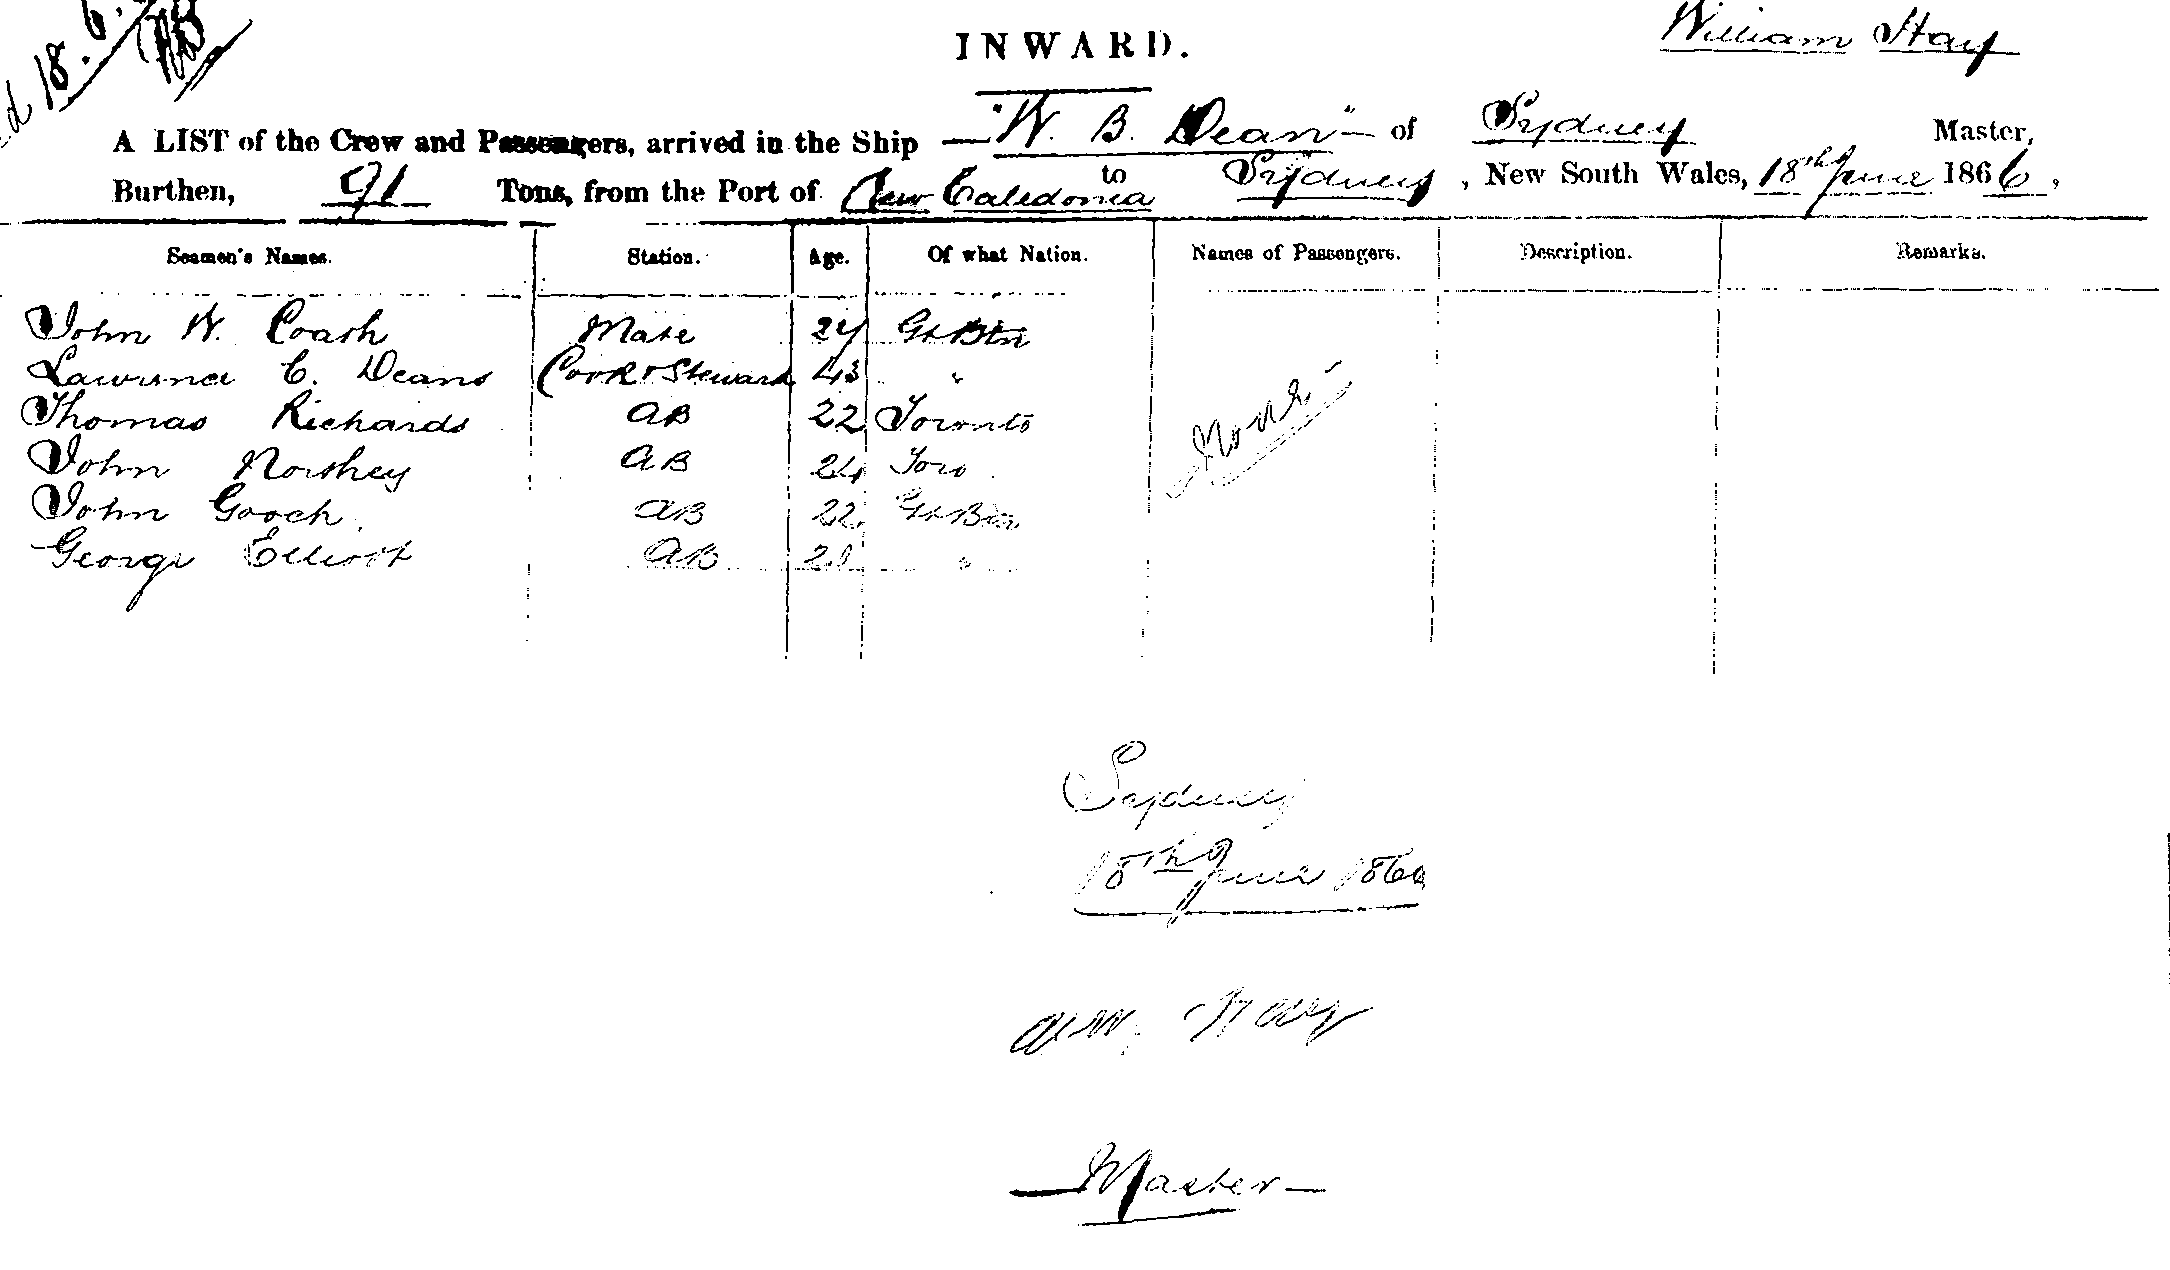 d 18. 6.
INWARD.
William Hay
A LIST of the Crew and Passengers, arrived in the Ship — "W. B. Dean" — of Sydney Master,
Burthen, 91 Tons, from the Port of New Caledonia to Sydney, New South Wales, 18th June 1866,
Seamen's Names. Station. Age. Of what Nation. Names of Passengers. Description. Remarks.
John W. Coath Mate 24 Gt Btn
Lawrence C. Deans Cook & Steward 43 "
Thomas Richards AB 22 Toronto
John Northey AB 24 Toro
John Gooch. AB 22 Gt Btn
George Elliott AB 21 "
None
Sydney
18th June 1866
Wm. Hay
—Master—